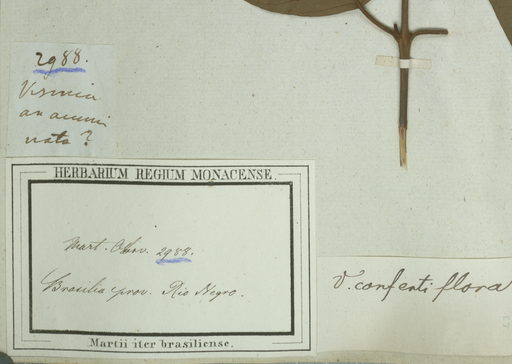 2988.
Vismia
an acumi
nata?
HERBARIUM REGIUM MONACENSE.
Mart. Obsv. 2988.
Brasilia prov. Rio Negro.
Martii iter brasiliense.
V. confertiflora